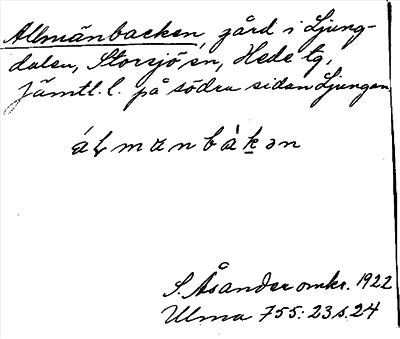 Allmänbacken, gård i Ljung-
dalen, Storsjö sn, Hede tg,
Jämtl. l. på södra sidan Ljungan
álmanbàkən
S. Åsander omkr. 1922
Ulma 755:23 s. 24